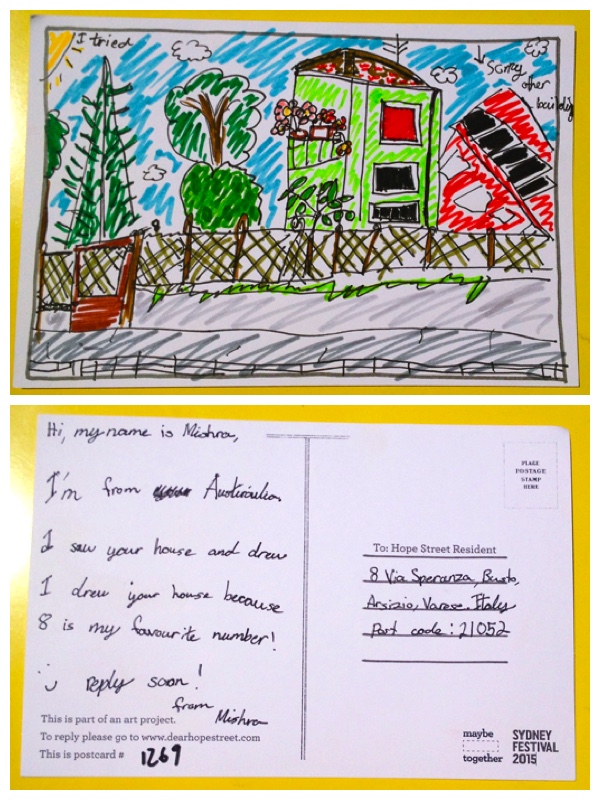 I tried
↓
sorry
other
buildig
Hi, my name is Mishra,
I'm from Austiraulia
I saw your house and drew
I drew your house because
8 is my favourite number!
:) reply soon!
from
Mishra
This is part of an art project.
To reply please go to www.dearhopestreet.com
This is postcard # 1269
PLACE
POSTAGE
STAMP
HERE
To: Hope Street Resident
8 Via Speranza, Busto,
Arsizio, Varese, Italy
Post code: 21052
maybe
together
SYDNEY
FESTIVAL
2015